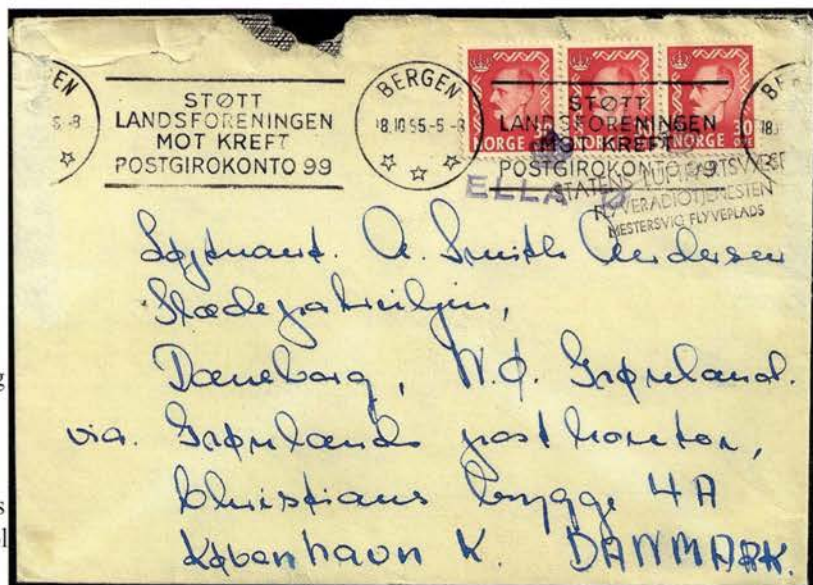 BERGEN
18.10.55-5-8
STØTT
LANDSFORENINGEN
MOT KREFT
POSTGIROKONTO 99
STØTT
LANDSFORENINGEN
MOT KREFT
POSTGIROKONTO 99
30
NORGE
ELLA Ø
STATENS LUFTFARTSVÆSEN
FLYVERADIOTJENESTEN
MESTERSVIG FLYVEPLADS
Løjtnant. A. Smith Andersen
Slædepatruljen,
Daneborg, N.Ø. Grønland.
via. Grønlands postkontor,
Christians brygge 4A
København K. DANMARK.